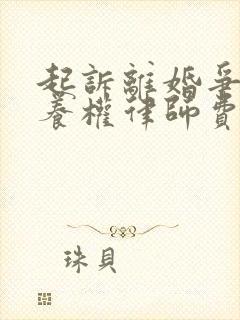 起訴離婚爭
養權律師費
珠貝